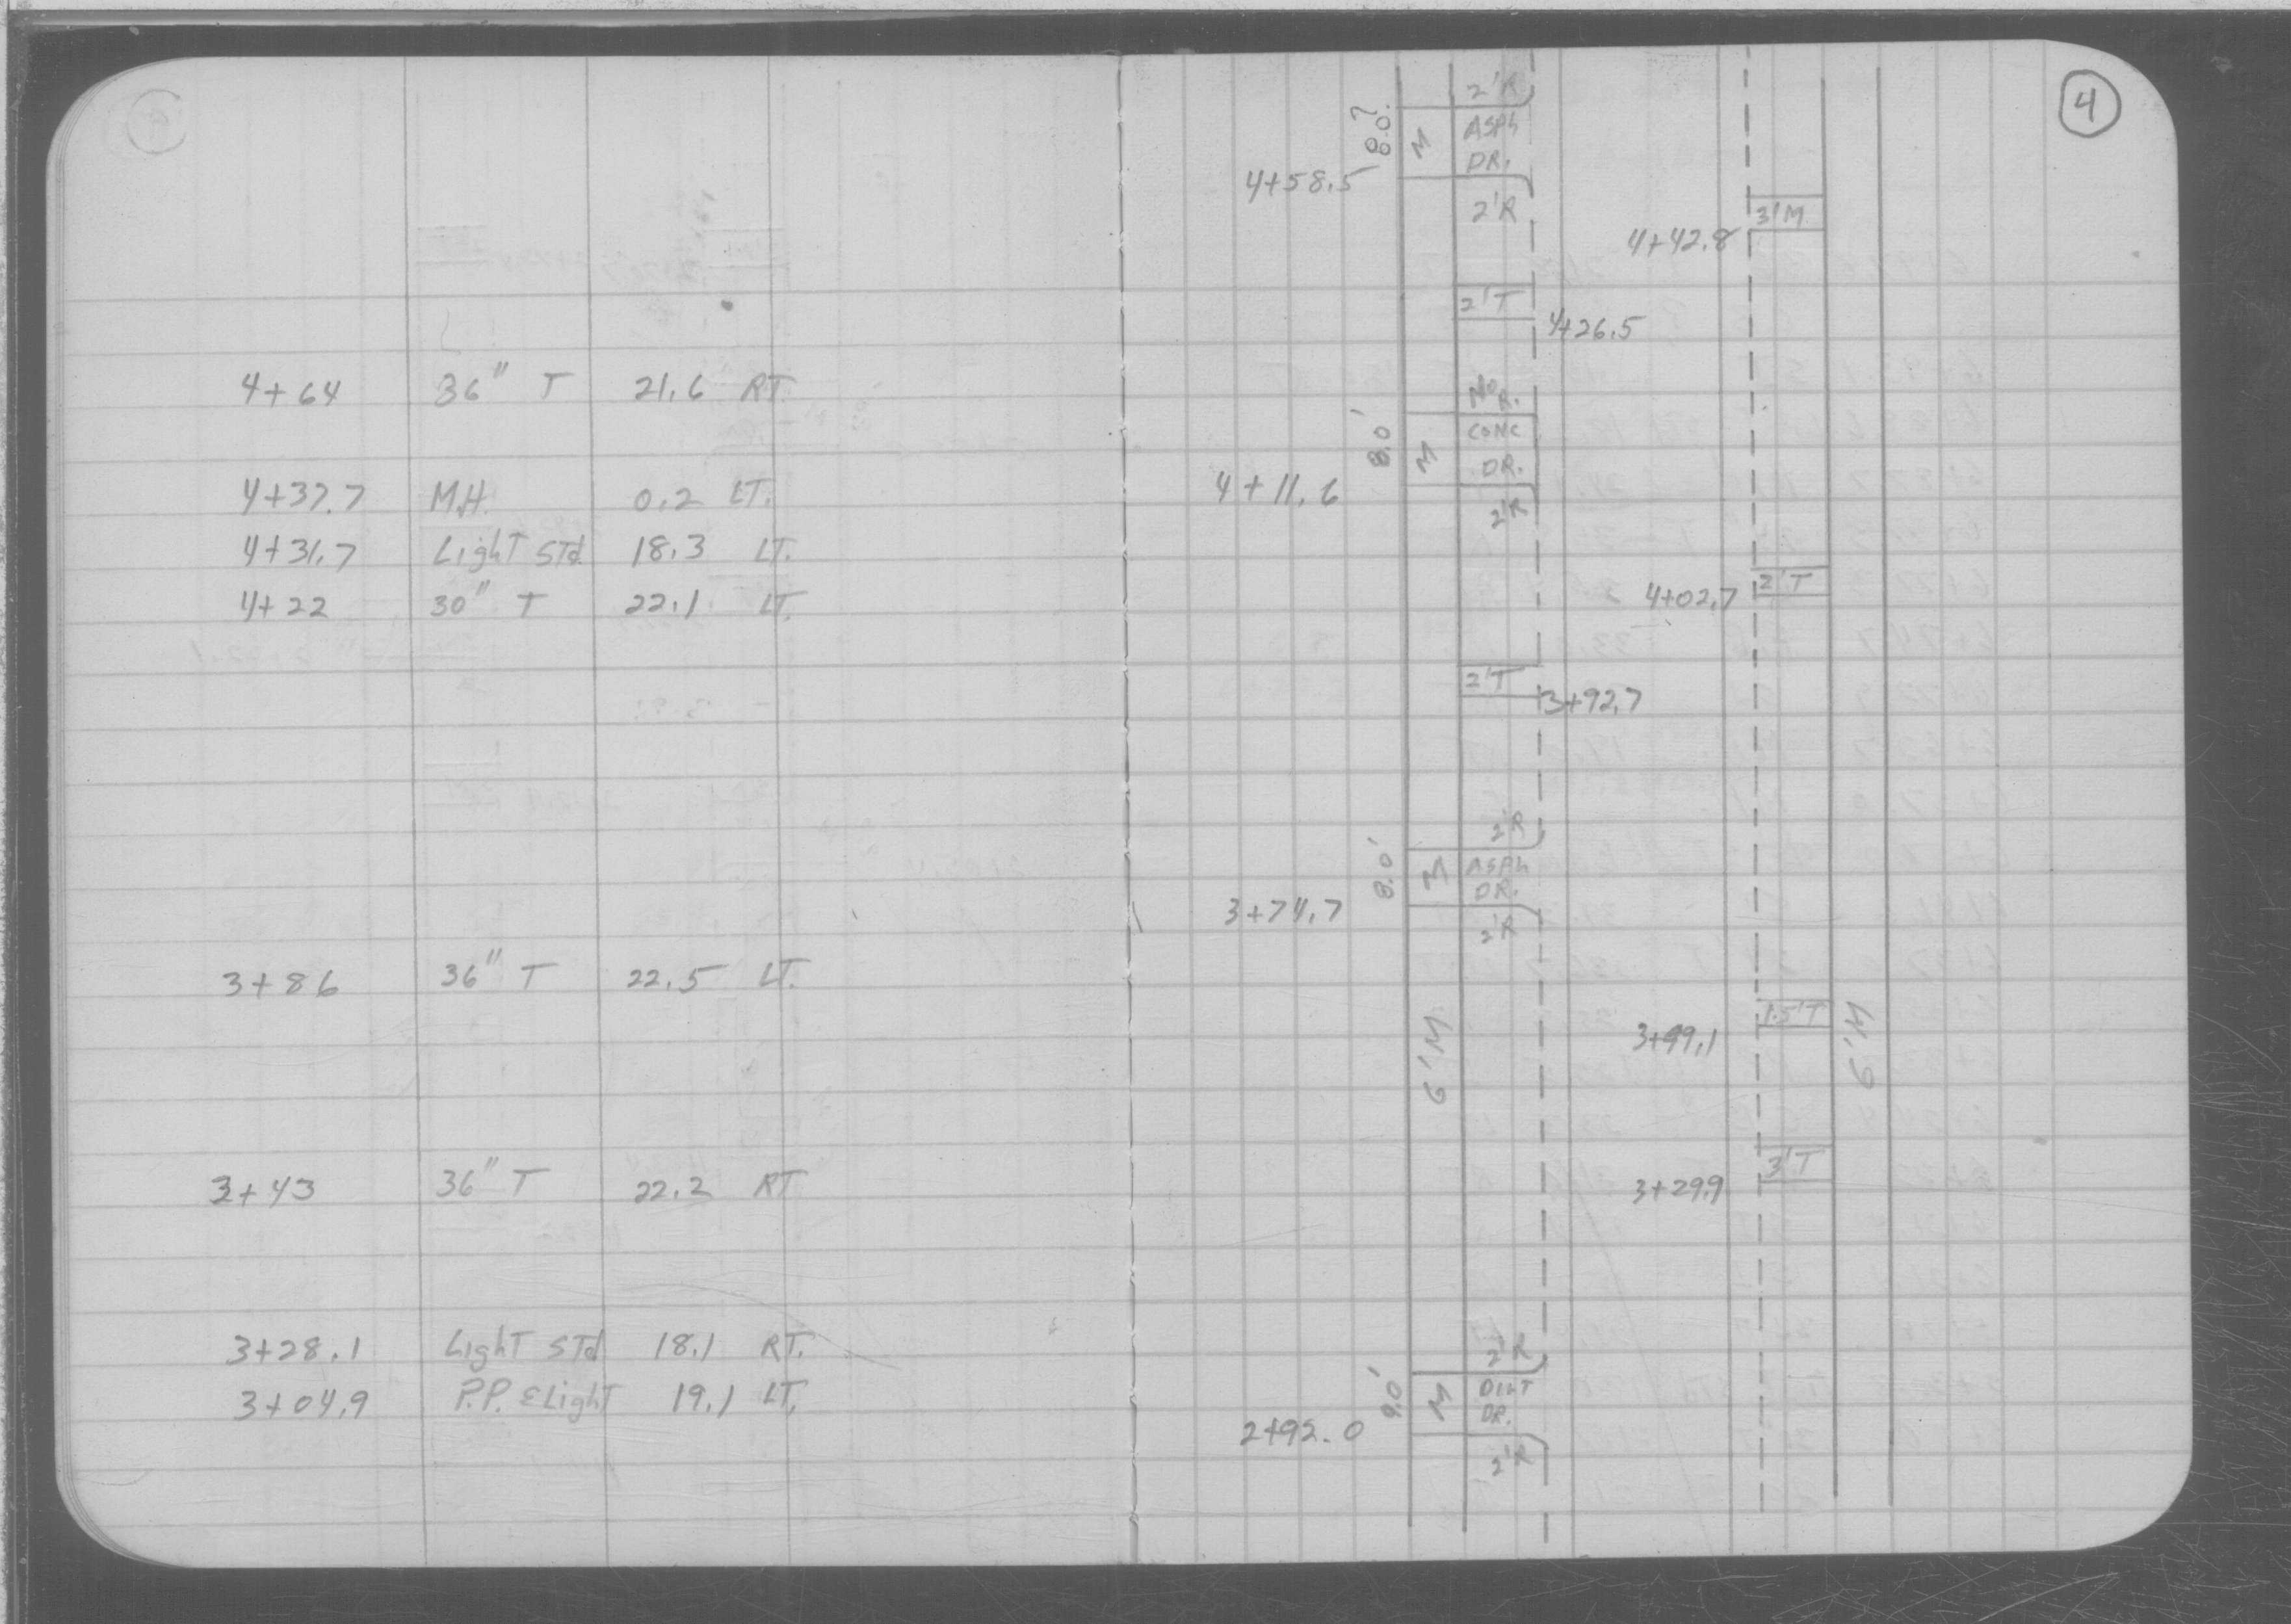 4+64 36" T 21.6 RT.
4+37.7 M.H. 0.2 LT.
4+31.7 Light STd. 18.3 LT.
4+22 30" T 22.1 LT.
3+86 36" T 22.5 LT.
3+43 36" T 22.2 RT
3+28.1 Light STd 18.1 RT.
3+04.9 P.P. & Light 19.1 LT.
4
2'R
8.0'
M
ASPh
DR.
4+58.5
2'R
3'M
4+42.8
2'T
4+26.5
No
R.
8.0'
M
CONC
DR.
4+11.6
2'R
2'T
4+02.7
2'T
3+92.7
2'R
8.0'
M
ASPh
DR.
3+74.7
2'R
1.5'T
6'M
3+99.1
6'M
3'T
3+29.9
2'R
9.0'
M
DIRT
DR.
2+92.0
2'R